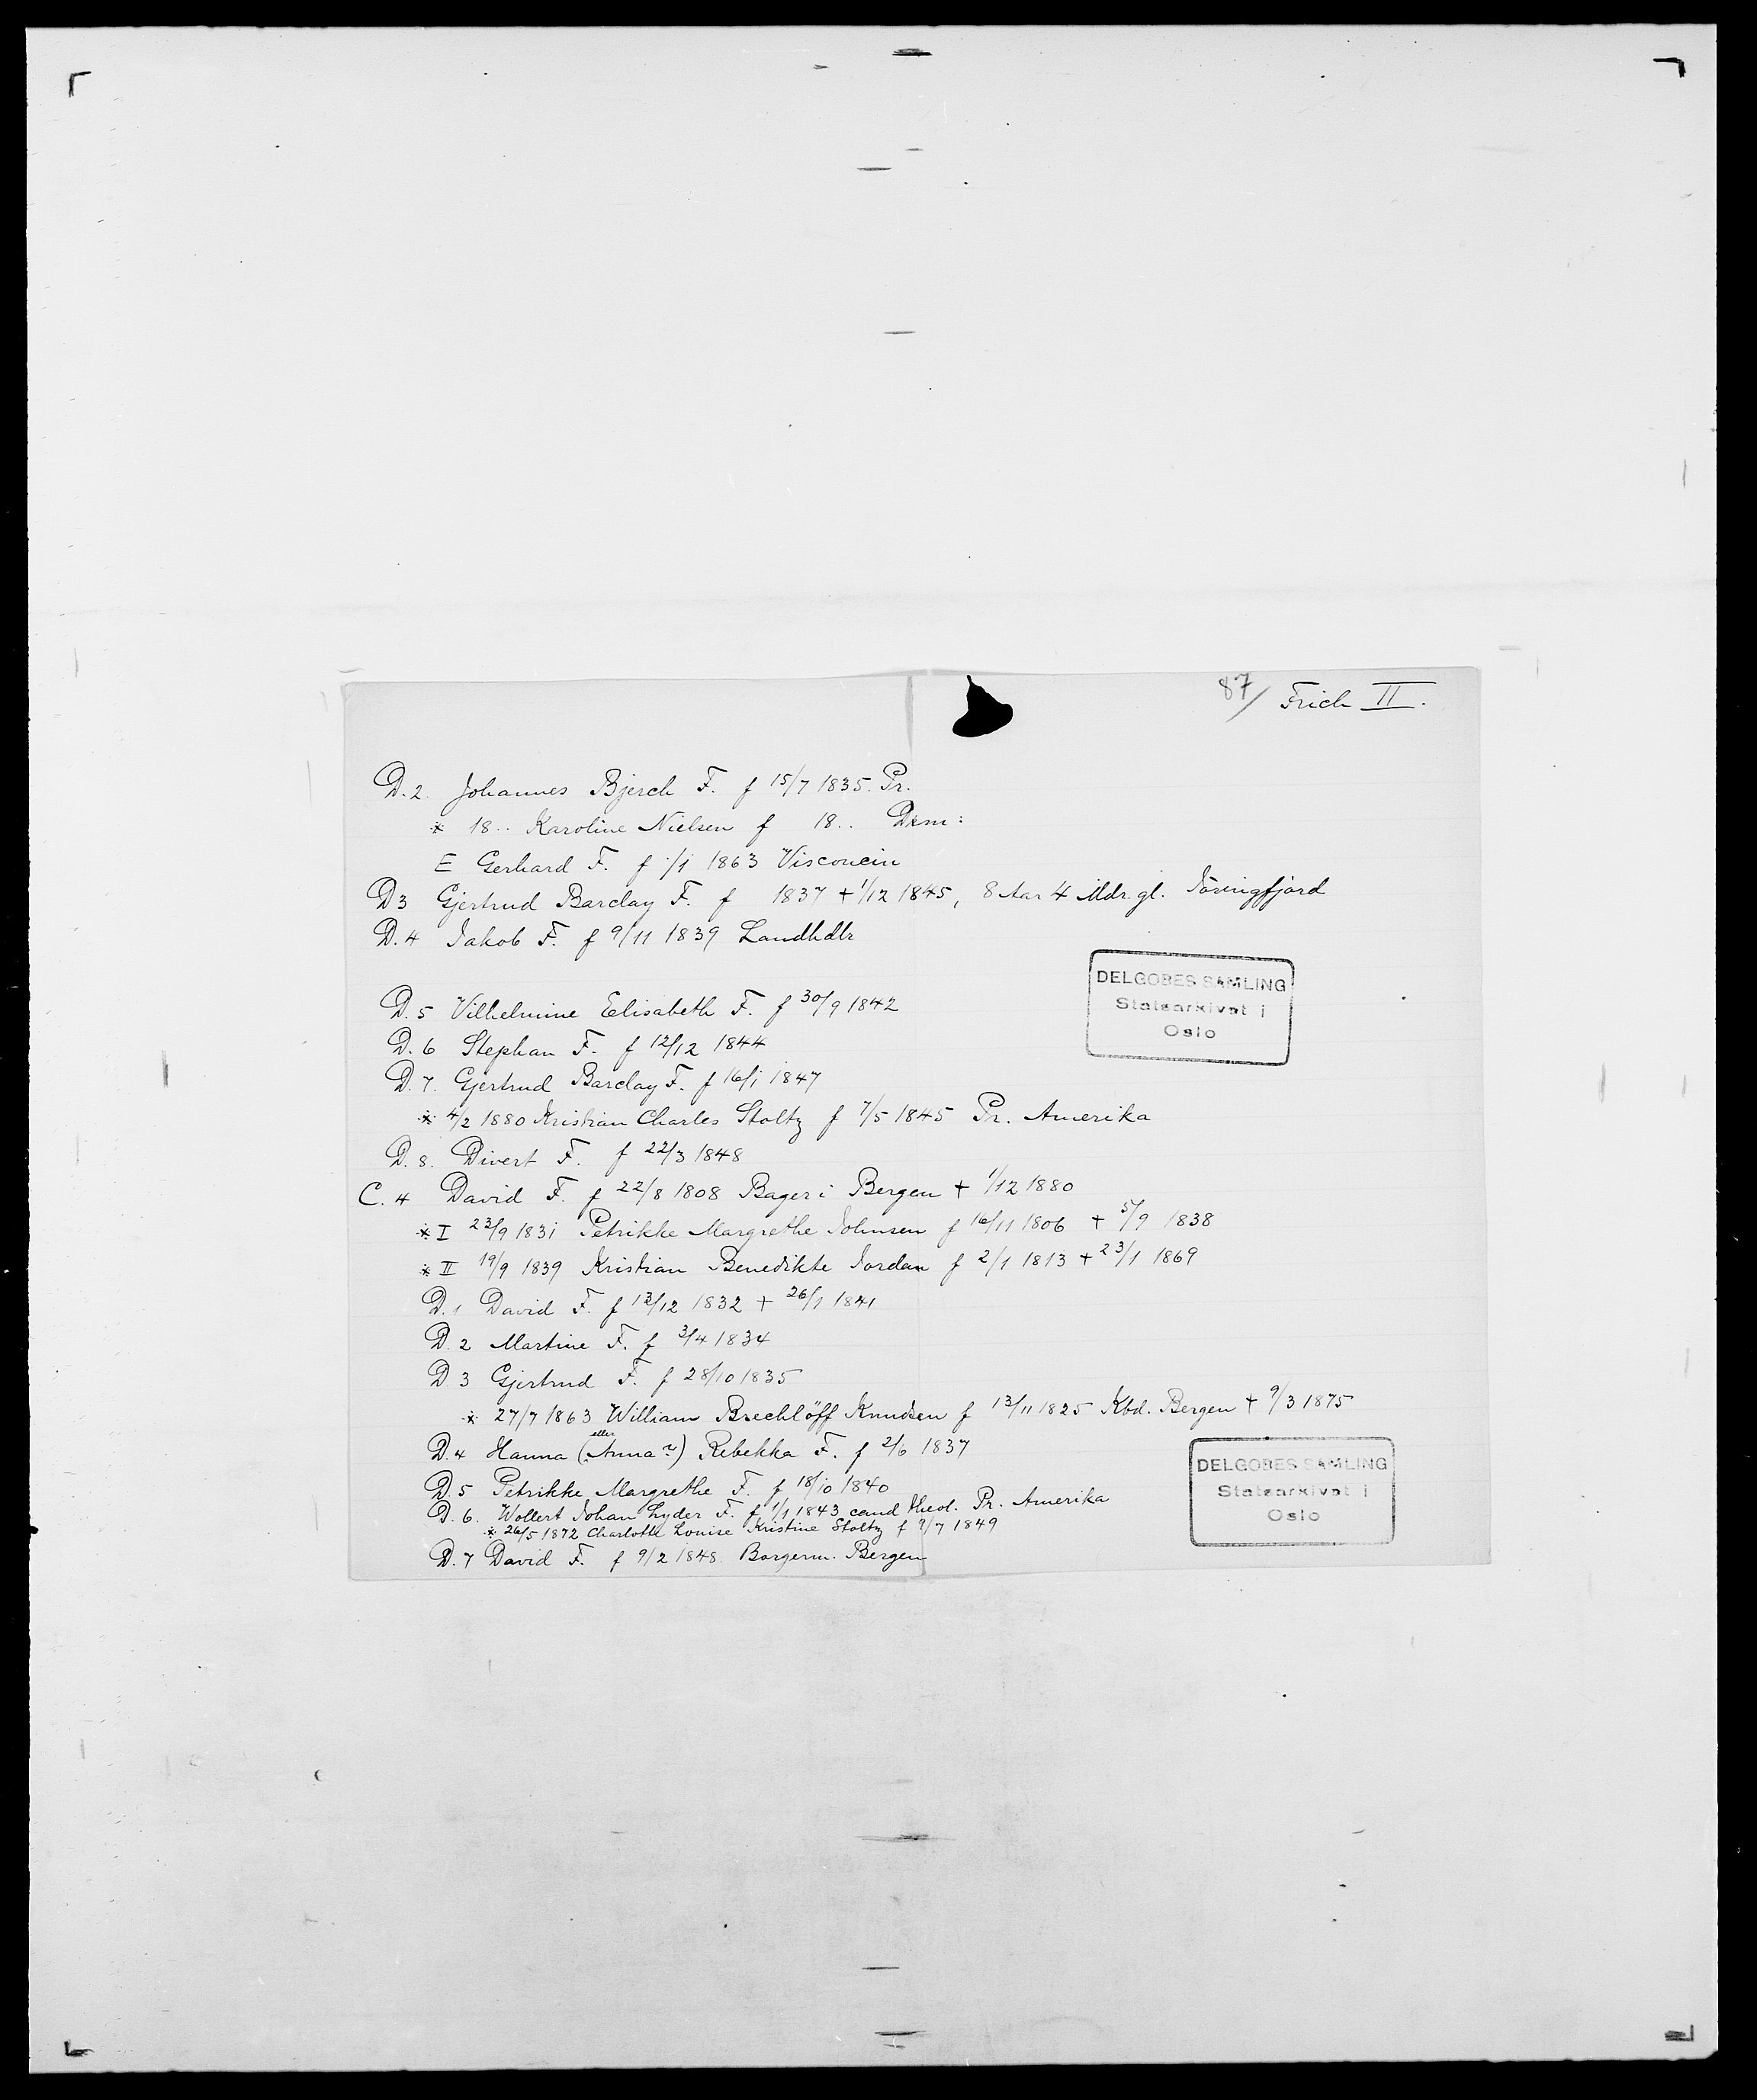 87/ Frich II.
D. 2. Johannes Bjerch F. f 15/7 1835. Pr.
* 18.. Karoline Nielsen f 18..
E Gerhard F. f 1/1 1863 Visconcin
D 3 Gjertrud Barclay F. f 1837 + 1/12 1845, 8 Aar 4 Mdr. gl.
D. 4 Jakob F. f 9/11 1839 Landhdlr
DELGOBES SAMLING
Statsarkivet i
Oslo
D. 5 Vilhelmine Elisabeth F. f 30/9 1842
D. 6 Stephan F. f 12/12 1844
D. 7. Gjertrud Barclay F. f 16/1 1847
* 4/2 1880 Kristian Charles Stoltz f 7/5 1845 Pr. Amerika
D. 8. Divert F. f 22/3 1848
C. 4 David F. f 22/8 1808 Bager i Bergen + 1/12 1880
* I 23/9 1831 Petrikke Margrethe Johnsen f 16/11 1806 + 5/9 1838
* II 19/9 1839 Kristian Benedikte Jordan f 2/1 1813 + 23/1 1869
D. 1 David F. f 13/12 1832 + 26/1 1841
D. 2 Martine F. f 3/4 1834
D 3 Gjertrud F. f 28/10 1835
* 27/7 1863 William Brechlöff Knudsen f 13/11 1825 Kbd. Bergen + 9/3 1875
D. 4 Hanna (eller Anna?) Rebekka F. f 2/6 1837
D. 5 Petrikke Margrethe F. f 18/10 1840
D. 6. Wollert Johan Lyder F. f 1/1 1843 cand theol. Pr. Amerika
* 26/5 1872 Charlotte Louise Kristine Stoltz f 9/7 1849
D. 7 David F. f 9/2 1848. Borgerm. Bergen
DELGOBES SAMLING
Statsarkivet i
Oslo